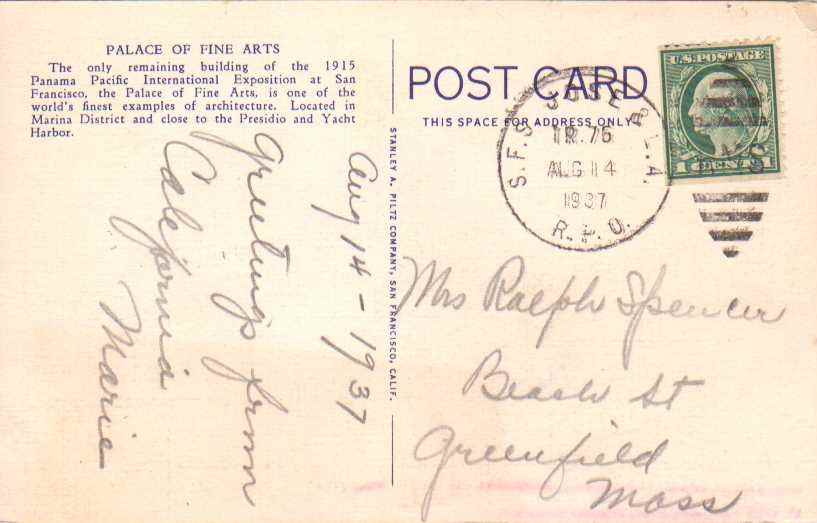 PALACE OF FINE ARTS
The only remaining building of the 1915
Panama Pacific International Exposition at San
Francisco, the Palace of Fine Arts, is one of the
world's finest examples of architecture. Located in
Marina District and close to the Presidio and Yacht
Harbor.
Aug 14 - 1937
Greetings from
California
Marie
STANLEY A. PILTZ COMPANY, SAN FRANCISCO, CALIF.
POST CARD
THIS SPACE FOR ADDRESS ONLY
S.F. S. JOSE & L.A.
TR. 76
AUG 14
1937
R.P.O.
U.S. POSTAGE
1 CENTS 1
Mrs Ralph Spencer
Beach St
Greenfield
Mass